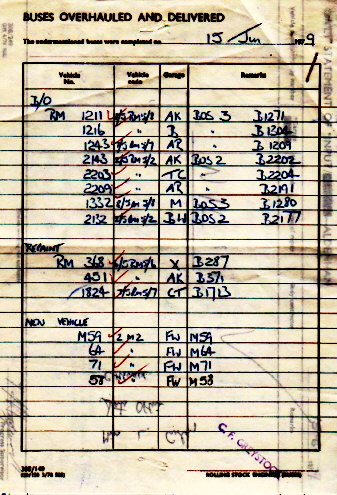 BUSES OVERHAULED AND DELIVERED
The undermentioned buses were completed on 15 Jun 1979
Vehicle No. Vehicle code Garage Remarks
B/O
RM 1211 5/5Rm5/8 AK BOS 3 B1271
1216 " R " B1204
1243 5/5Rm5/7 AR " B1209
2143 5/5Rm5/2 AK BOS 2 B2202
2203 " TC " B2204
2209 " AR " B2191
1332 5/5Rm5/8 M BOS3 B1280
2132 5/5Rm5/2 BH BOS2 B2177
REPAINT
RM 368 5/5Rm5/6 X B287
451 " AK B571
1824 5/5Rm5/7 CT B1713
NEW VEHICLE
M59 2 M2 FW M59
64 " FW M64
71 " FW M71
58 " FW M58
C. F. GREYSTOCK
ROLLING STOCK ENGINEER